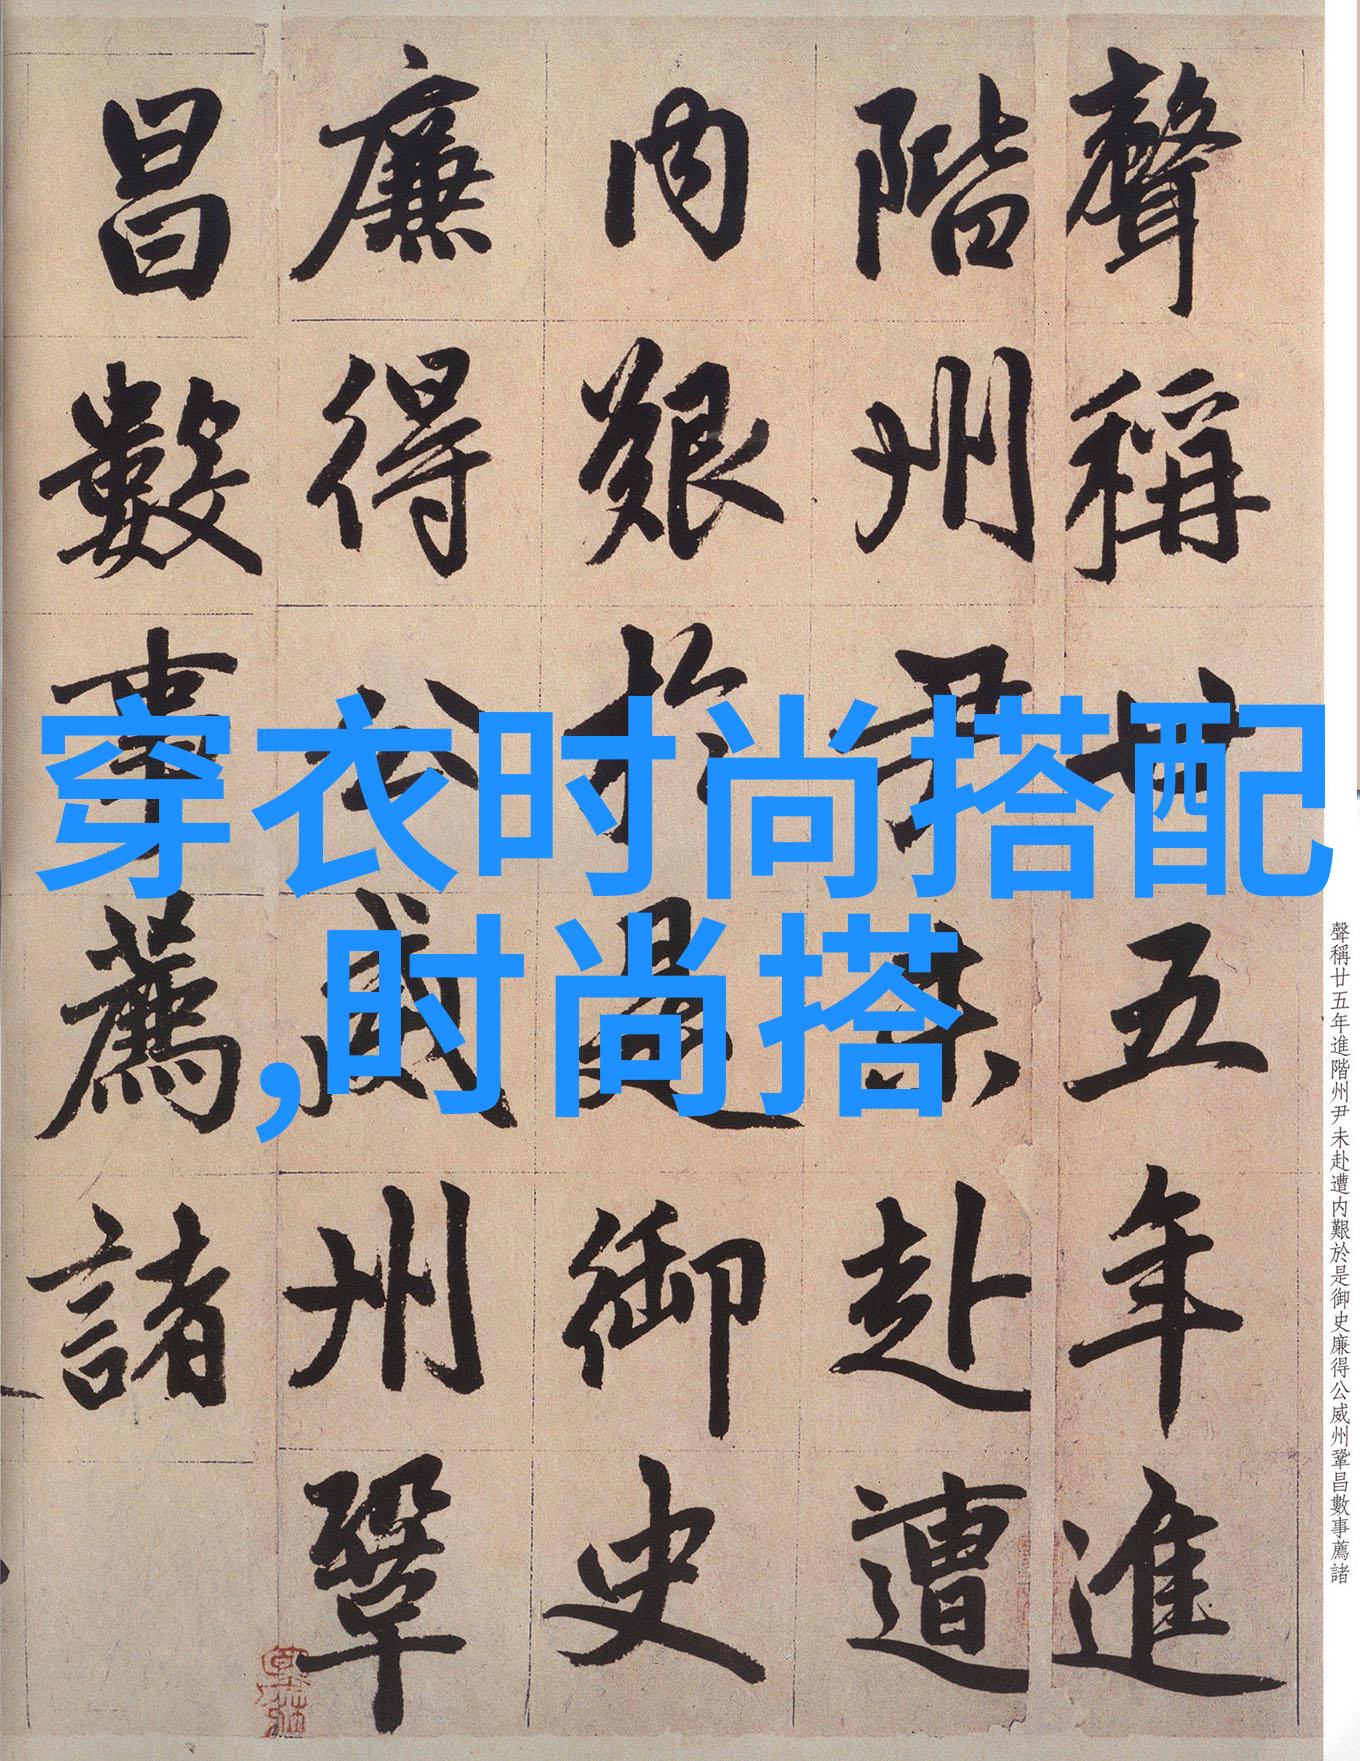 聲稱廿五年進
階州尹未赴遭
内艱於是御史
廉得公威州鞏
昌數事薦諸
穿衣时尚搭配
,时尚搭
聲稱廿五年進階州尹未赴遭内艱於是御史廉得公威州鞏昌數事薦諸